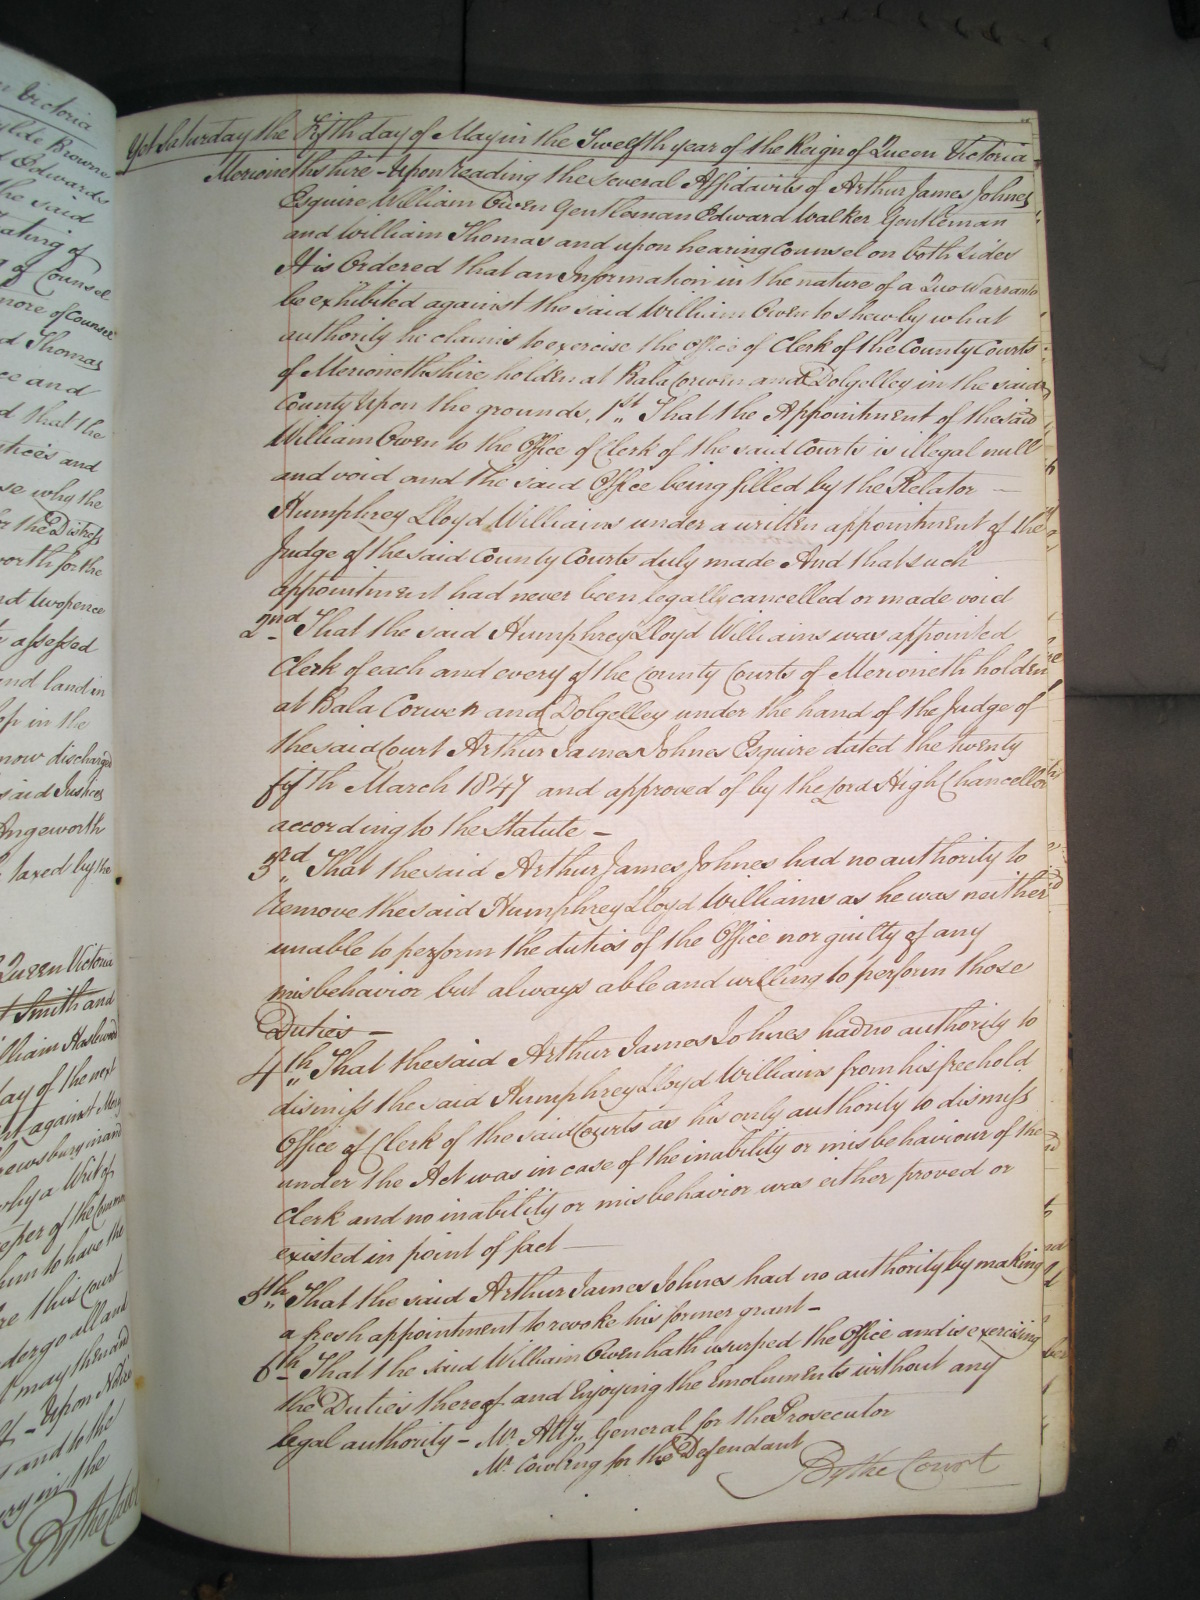 n Victoria
ylde Browne
d Edwards
the said
ating of
g of Counsel
more of Counsel
d Thomas
ce and
d that the
stices and
se why the
for the Distress
worth for the
and twopence
assessed
and land in
in the
now discharged
said Justices
Angeworth
taxed by the
Queen Victoria
t Smith and
illiam Haslewood
day of the next
against
rewsbury in and
by a Writ of
eper of the Common
him to have the
re this Court
dergo all and
may then and
Upon Notice
and to the
ury in the
By the Court
Yet Saturday the Fifth day of May in the Twelfth year of the Reign of Queen Victoria
Merionethshire – Upon reading the several Affidavits of Arthur James Johnes
Esquire William Owen Gentleman Edward Walker Gentleman
and William Thomas and upon hearing Counsel on both sides
It is Ordered that an Information in the nature of a Quo Warranto
be exhibited against the said William Owen to shew by what
authority he claims to exercise the Office of Clerk of the County Courts
of Merionethshire holden at Bala Corwen and Dolgelley in the said
County Upon the grounds, 1st „ That the Appointment of the said
William Owen to the Office of Clerk of the said Courts is illegal null
and void and the said Office being filled by the Relator –
Humphrey Lloyd Williams under a written appointment of the
Judge of the said County Courts duly made And that such
appointment had never been legally cancelled or made void
2nd – That the said Humphrey Lloyd Williams was appointed
Clerk of each and every of the County Courts of Merioneth holden
at Bala Corwen and Dolgelley under the hand of the Judge of
the said Court Arthur James Johnes Esquire dated the twenty
fifth March 1847 and approved of by the Lord High Chancellor
according to the Statute –
3rd „ That the said Arthur James Johnes had no authority to
remove the said Humphrey Lloyd Williams as he was neither
unable to perform the duties of the Office nor guilty of any
misbehavior but always able and willing to perform those
Duties –
4th „ That the said Arthur James Johnes had no authority to
dismiss the said Humphrey Lloyd Williams from his freehold
Office of Clerk of the said Courts as his only authority to dismiss
under the Act was in case of the inability or misbehaviour of the
Clerk and no inability or misbehavior was either proved or
existed in point of fact –
5th „ That the said Arthur James Johnes had no authority by making
a fresh appointment to revoke his former grant –
6th – That the said William Owen hath usurped the Office and is exercising
the Duties thereof and Enjoying the Emoluments without any
legal authority – Mr. Atty„ General for the Prosecutor
Mr. Cowling for the Defendant
By the Court